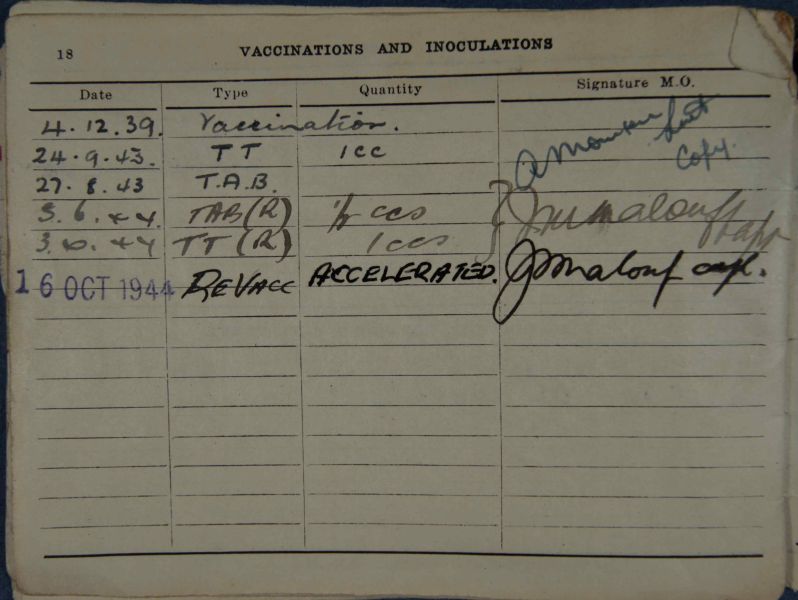 18 VACCINATIONS AND INOCULATIONS
Date Type Quantity Signature M.O.
4.12.39. Vaccination.
24.9.43. TT 1cc
Copy.
27.8.43 T.A.B.
3.6.44 TAB(R) ccs J M Malouf Capt
3.6.44 TT(R) 1ccs
16 OCT 1944 REVACC ACCELERATED. J M Malouf capt.